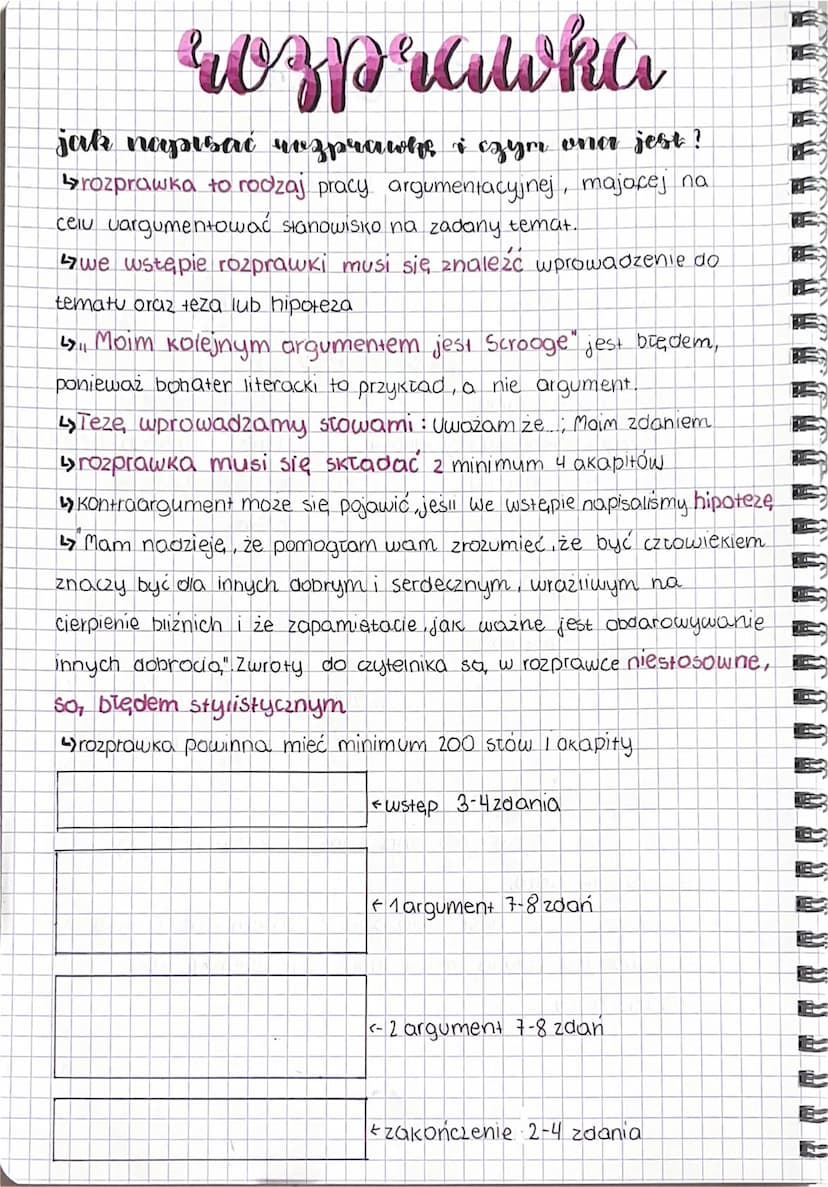 rozprawka
jak napisać rozprawkę i czym ona jest?
↳rozprawka to rodzaj pracy argumentacyjnej, mającej na
celu uargumentować stanowisko na zadany temat.
↳we wstępie rozprawki musi się znaleźć wprowadzenie do
tematu oraz teza lub hipoteza
↳„Moim kolejnym argumentem jest Scrooge" jest błędem,
ponieważ bohater literacki to przykład, a nie argument.
↳Tezę wprowadzamy słowami: Uważam że...; Moim zdaniem
↳rozprawka musi się składać z minimum 4 akapitów
↳kontraargument może się pojawić, jeśli we wstępie napisaliśmy hipotezę
↳"Mam nadzieję, że pomogłam wam zrozumieć, że być człowiekiem
znaczy być dla innych dobrym i serdecznym, wrażliwym na
cierpienie bliźnich i że zapamiętacie, jak ważne jest obdarowywanie
innych dobrocią". Zwroty do czytelnika są, w rozprawce niestosowne,
są, błędem stylistycznym
↳rozprawka powinna mieć minimum 200 słów i akapity
←wstęp 3-4 zdania
←1 argument 7-8 zdań
←2 argument 7-8 zdań
←zakończenie 2-4 zdania